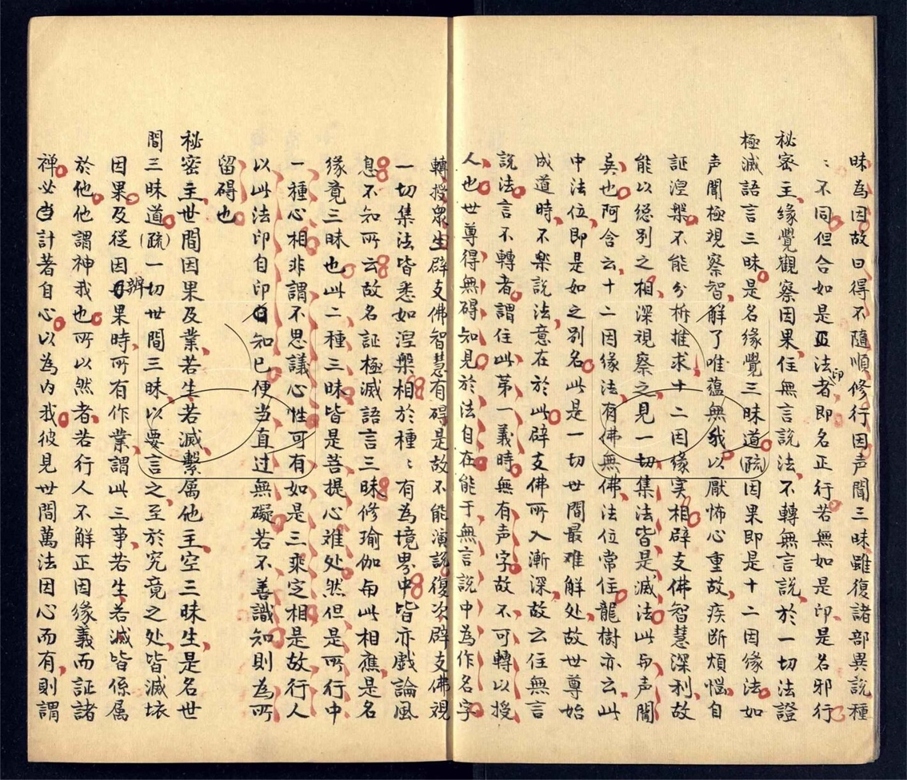 昧為因故曰得不隨順修行因声聞三昧雖復諸部異說種
：不同但合如是法印者即名正行若無如是印是名邪行
秘密主緣覺觀察因果住無言說法不轉無言說於一切法證
極滅語言三昧是名緣覺三昧道（疏）因果即是十二因緣法如
声聞極視察智解了唯蘊無我以厭怖心重故疾断煩惱自
証涅槃不能分柝推求十二因緣実相辟支佛智慧深利故
能以緫别之相深視察之見一切集法皆是滅法此与声聞
異也阿含云十二因緣法有佛無佛法位常住龍樹亦云此
中法位即是如之别名此是一切世間最难解处故世尊始
成道時不樂説法意在於此辟支佛所入漸深故云住無言
説法言不轉者謂住此第一義時無有声字故不可轉以授
人也世尊得無碍知見於法自在能于無言說中為作名字
轉授眾生辟支佛智慧有碍是故不能演說復次辟支佛視
一切集法皆悉如涅槃相於種：有為境界中皆亦戲論風
息不知所云故名証極滅語言三昧修瑜伽与此相應是名
緣竟三昧也此二種三昧皆是菩提心难处然但是所行中
一種心相非謂不思議心性可有如是三乘定相是故行人
以此法印自印知已便当直过無礙若不善識知則為所
留碍也
秘密主世間因果及業若生若滅繫属他主空三昧生是名世
間三昧道（疏）一切世間三昧以要言之至於究竟之处皆滅坏
因果及從因辦果時所有作業謂此三事若生若滅皆係属
於他他謂神我也所以然者若行人不解正因緣義而証諸
禅必当計著自心以為内我彼見世間萬法因心而有則謂